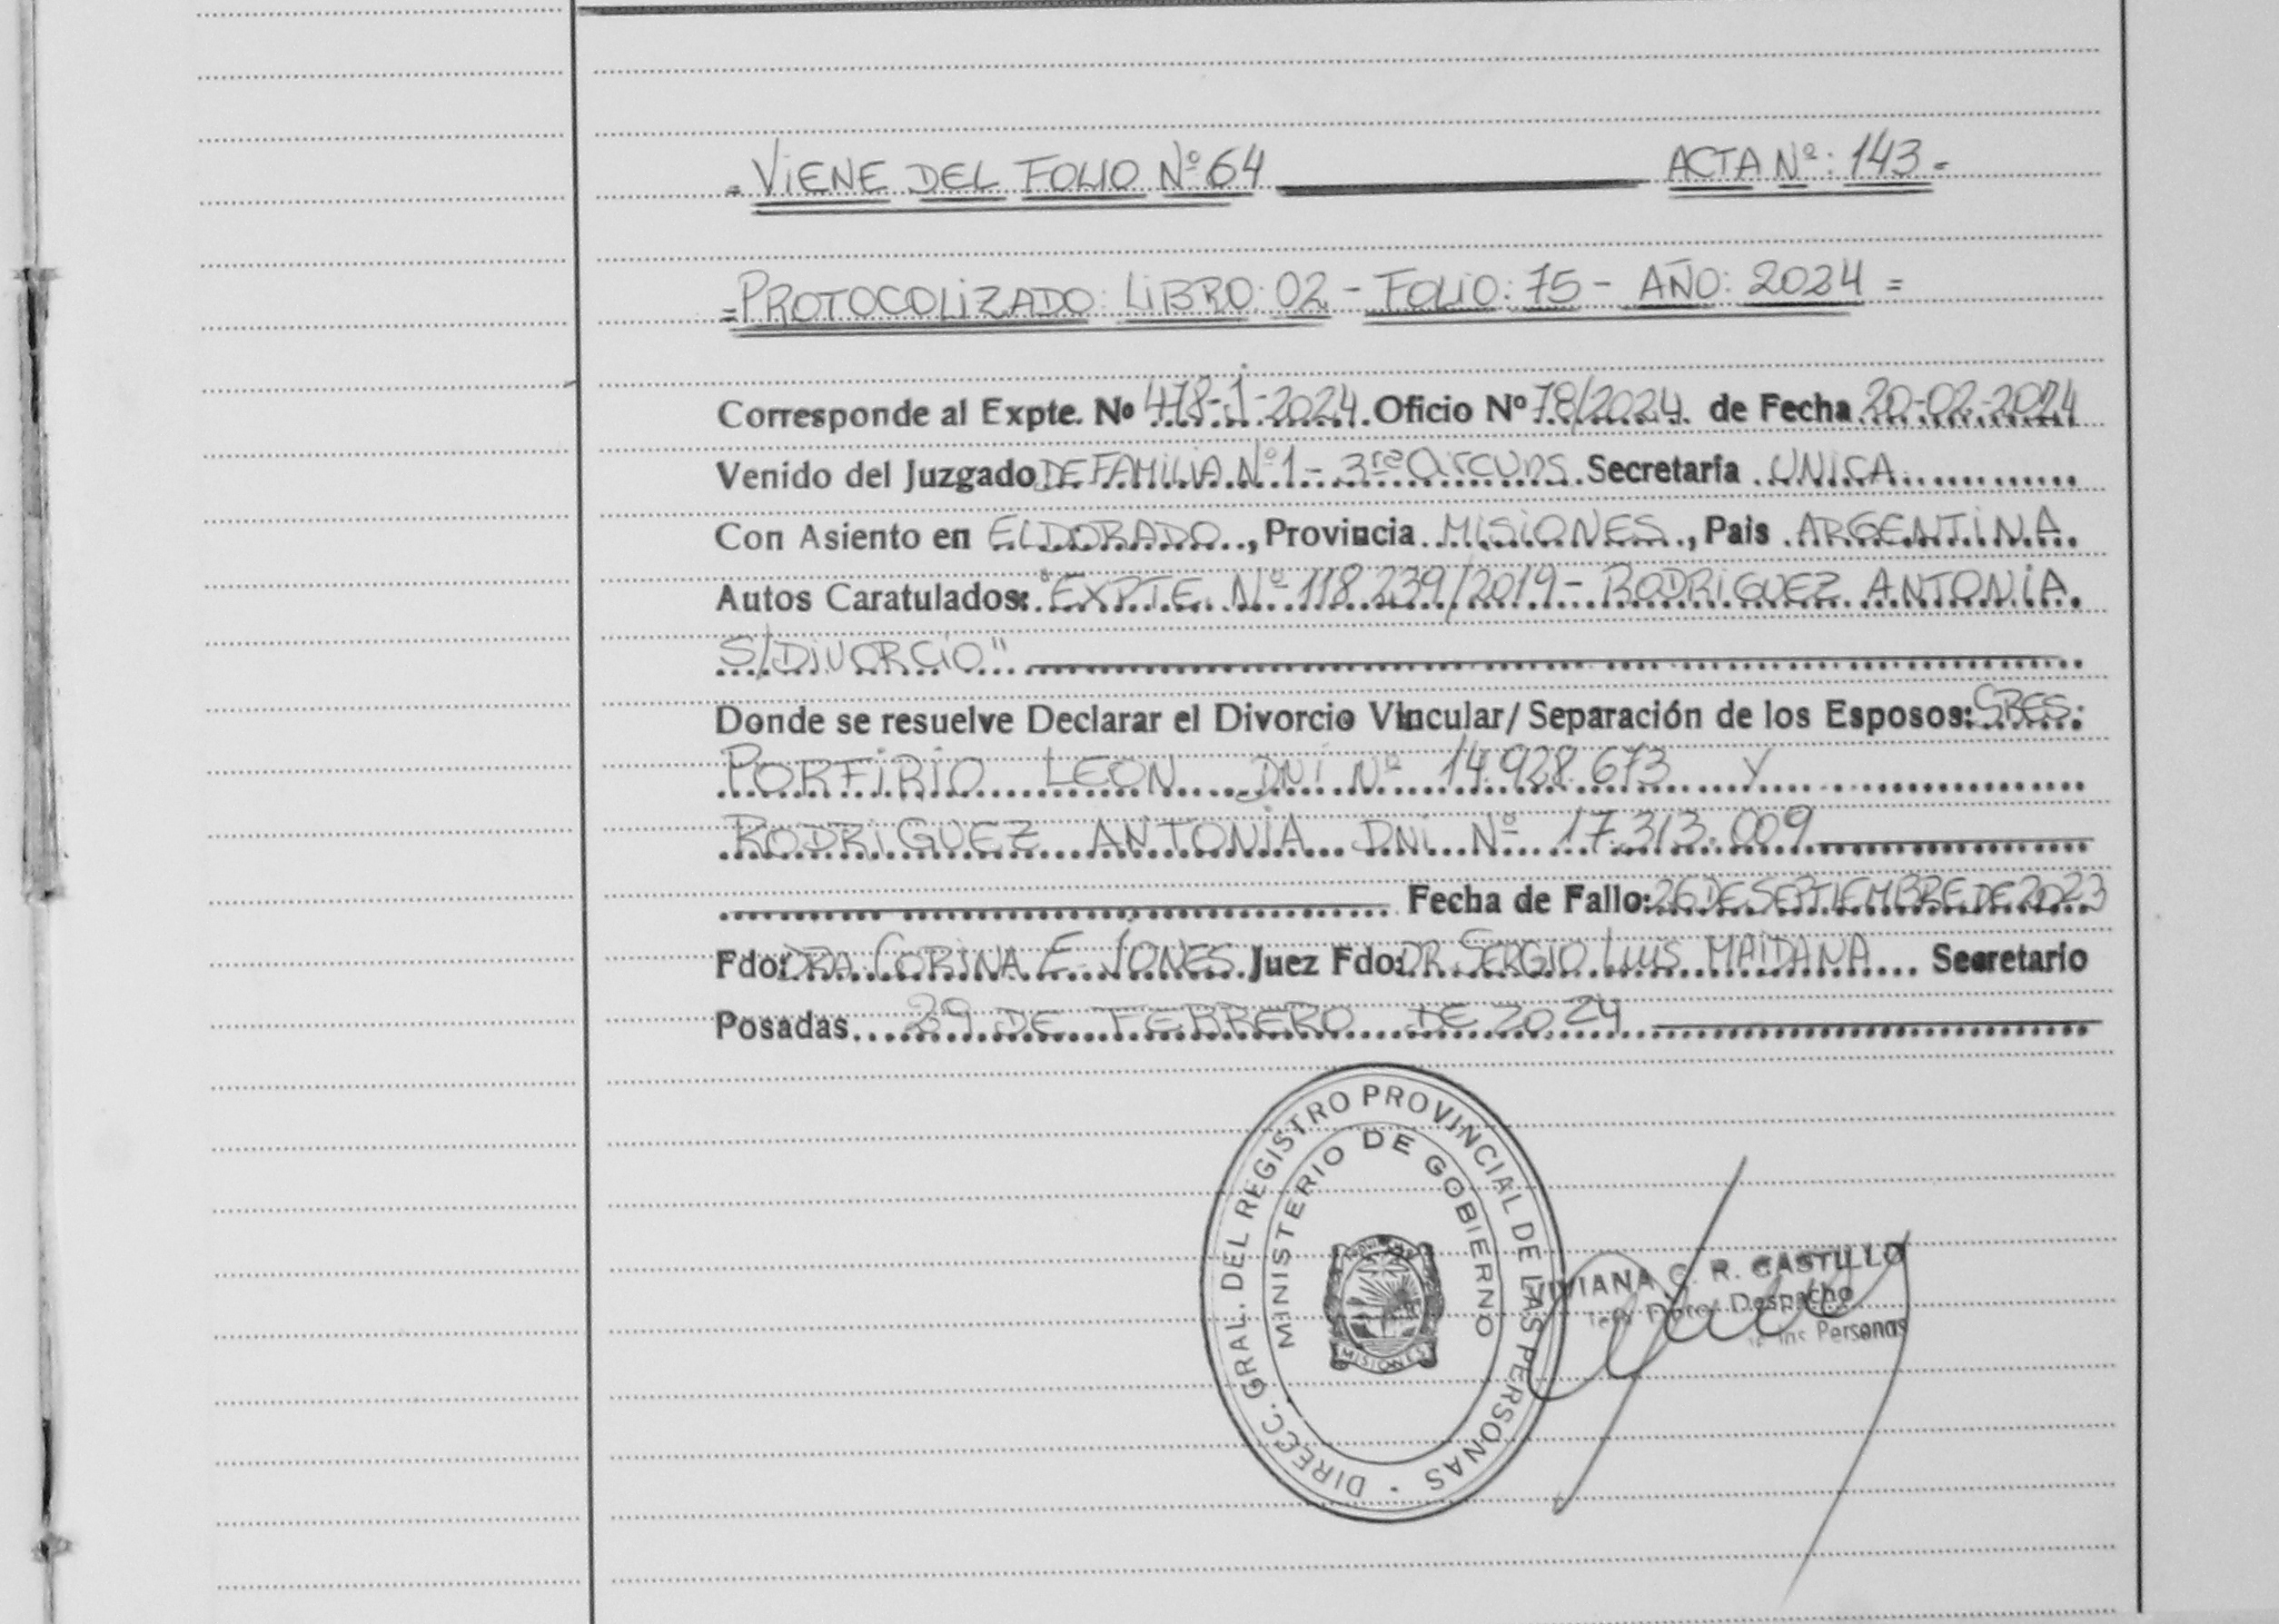 = VIENE DEL FOLIO Nº 64 ACTA Nº: 143 =
= PROTOCOLIZADO: LIBRO: 02 - FOLIO: 75 - AÑO: 2024 =
Corresponde al Expte. Nº 478-J-2024. Oficio Nº 78/2024. de Fecha 20-02-2024
Venido del Juzgado DE FAMILIA Nº 1 - 3ra Circuns. Secretaría UNICA
Con Asiento en ELDORADO, Provincia MISIONES, Pais ARGENTINA.
Autos Caratulados: "EXPTE. Nº 118.239/2019 - RODRIGUEZ ANTONIA
S/DIVORCIO"
Donde se resuelve Declarar el Divorcio Vincular/ Separación de los Esposos: SRES:
PORFIRIO LEON DNI Nº 14.928.673 Y
RODRIGUEZ ANTONIA DNI Nº 17.313.009
Fecha de Fallo: 26 DE SEPTIEMBRE DE 2023
Fdo: DRA. CORINA E. JONES. Juez Fdo: DR. SERGIO LUIS MAIDANA Secretario
Posadas 29 DE FEBRERO DE 2024
DIRECC. GRAL. DEL REGISTRO PROVINCIAL DE LAS PERSONAS
MINISTERIO DE GOBIERNO
MISIONES
VIVIANA C. R. CASTILLO
Despacho
las Personas